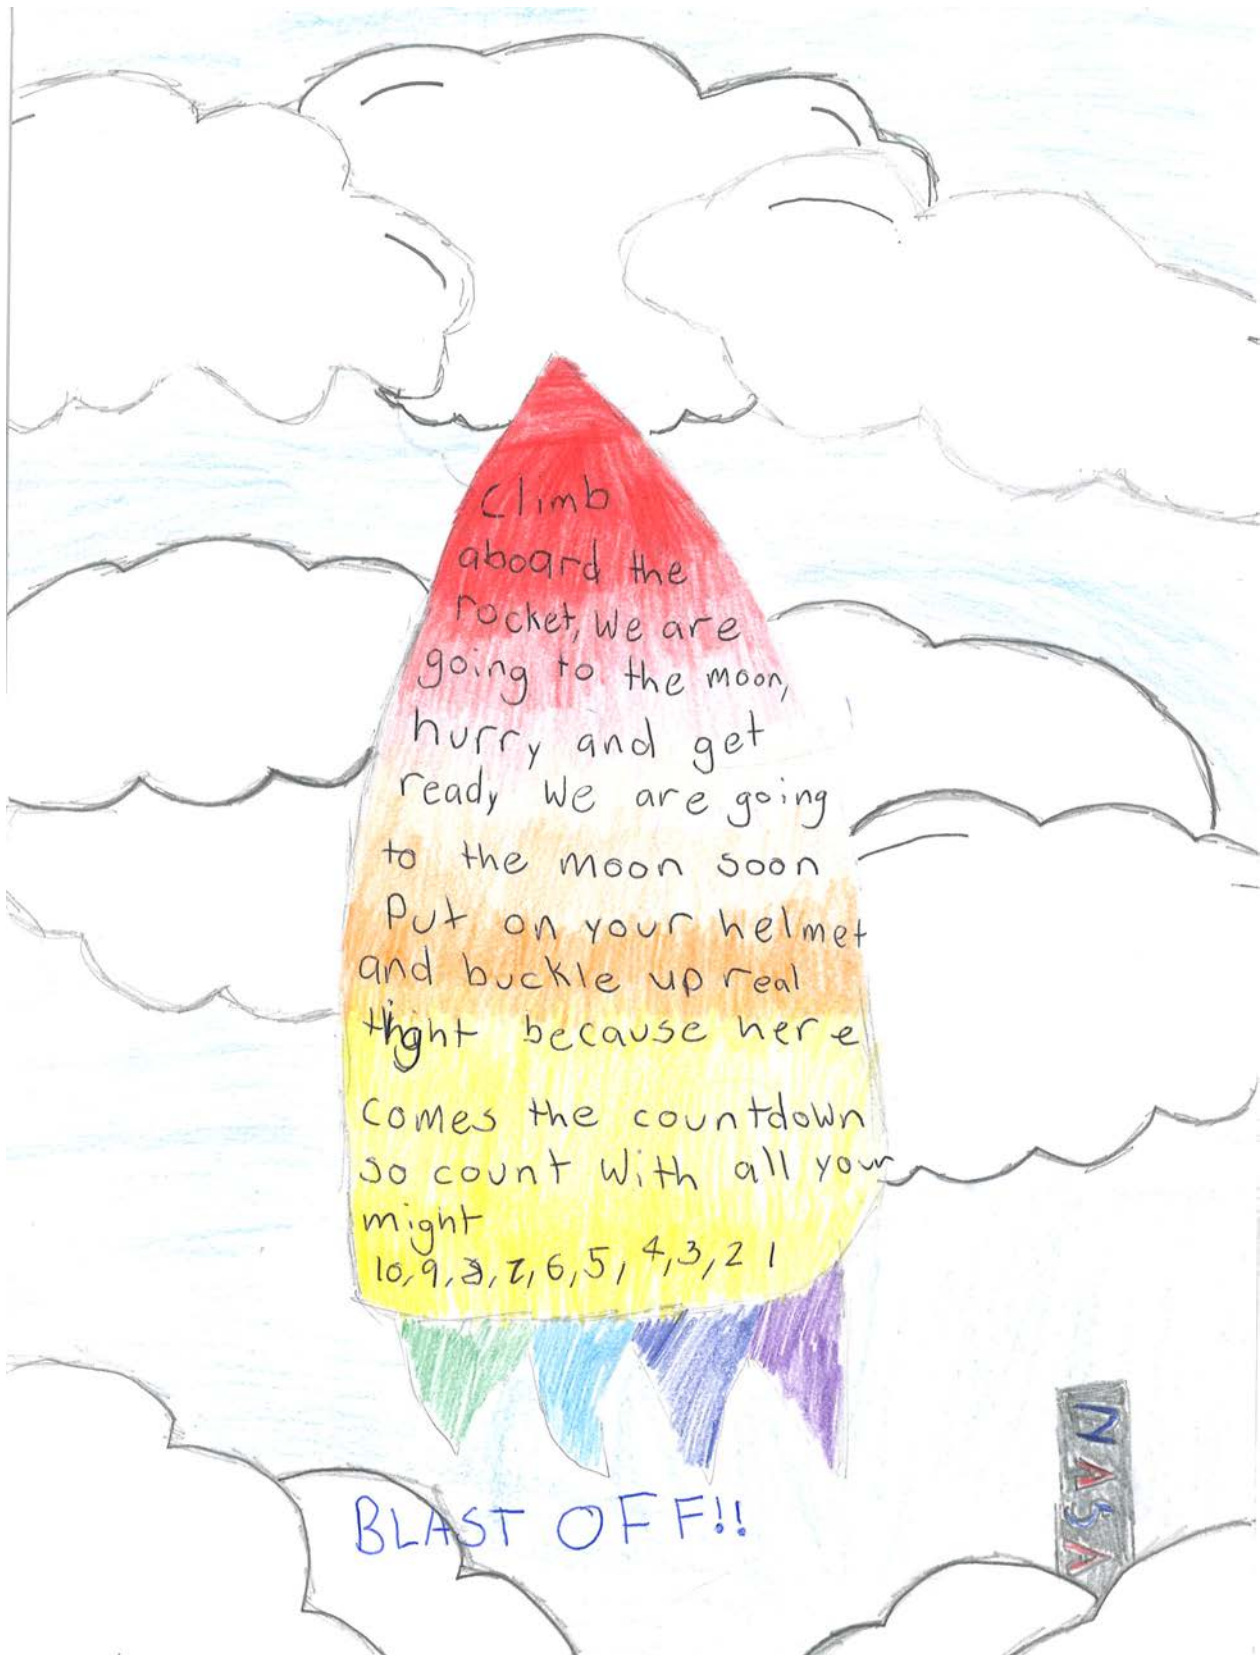 Climb
aboard the
rocket, We are
going to the moon,
hurry and get
ready We are going
to the moon soon
Put on your helmet
and buckle up real
because here
comes the countdown
so count with all your
might
10,9,8,7,6,5,4,3,2 1
BLAST OFF!!
NASA